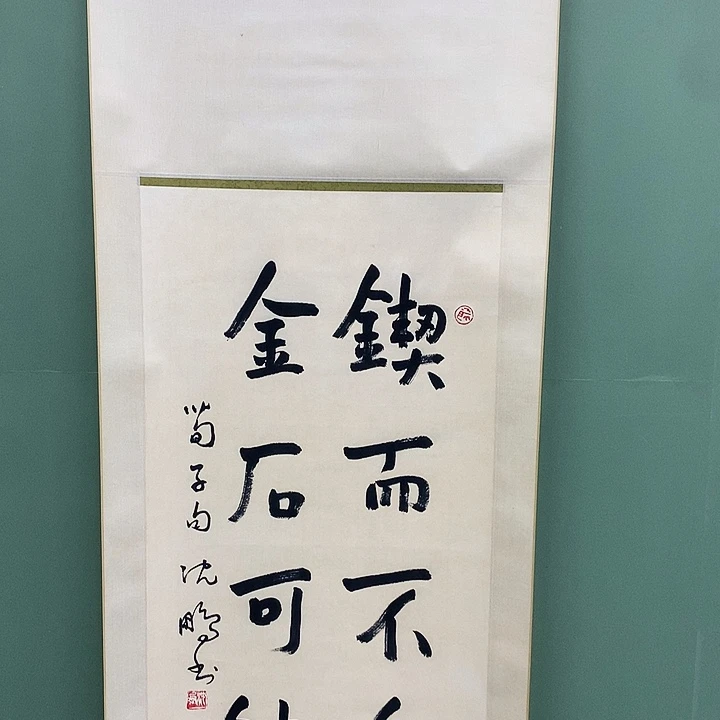 鍥而不
金石可
荀子句 沈鹏书